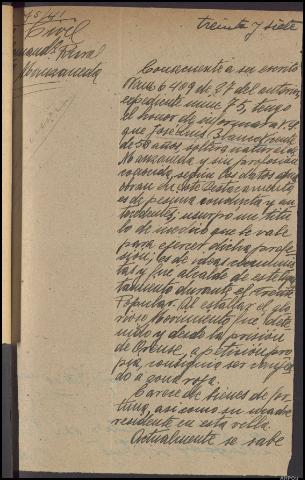 treinta y siete
Consecuente a su escrito
Núm 6489 de 27 del anterior,
expediente num 75, tengo
el honor de informar a V.S.
que José Luis Blanco
de 50 años, soltero natural de
Manzaneda y sin profesion
conocida, según los datos que
obran en este Destacamento
es de pesima conducta y an-
tecedentes; usurpó un titu-
lo de medico que se vale
para ejercer dicha profe-
sión; es de ideas comunis-
tas y fue alcalde de este Ayun-
tamiento durante el frente
Popular. Al estallar el glo-
rioso Movimiento fue dete-
nido y desde la prisión
de Orense, a petición pro-
pia, consiguio ser canjea-
do a zona roja.
Carece de bienes de for-
tuna, asi como su madre
residente en esta villa.
Actualmente se sabe